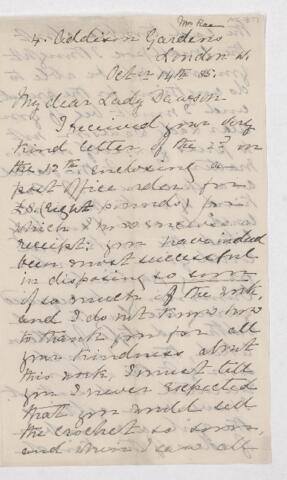 Mrs Rae
4. Addison Gardens
London W.
Octr 14th 85.
My dear Lady Dawson
I received your very
kind letter of the 2nd on
the 12th enclosing a
post Office order for
£8 (eight pounds) for
which I now enclose
receipt. You have indeed
been most successful
in disposing so soon
of so much of the work,
and I do not know how
to thank you for all
your kindness about
this work, I must tell
you I never expected
that you would sell
the crochet so soon,
and when I saw all